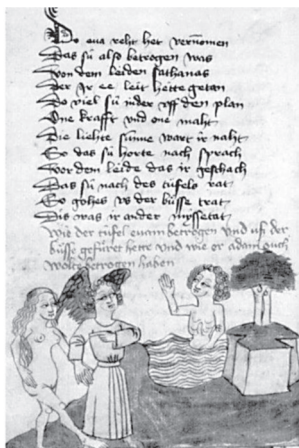 Do eua reht het vernomen
Das sü also betrogen was
Von dem leiden sathanas
Der Ir ee leit hette getan
Do viel sü nider vff den plan
One krafft vnd one maht
Die liehte sunne wart ir naht
So das sü horte nach sprach
Vor dem leide das ir geschach
Das sü nach des tüfels rat
So gohes vs der büsse trat
Dis was ir ander myssetat
Wie der tüfel euam betrogen vnd vs der
büsse gefüret hette vnd wie er adam ouch
wolte betrogen haben